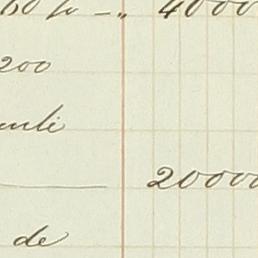 60 fr — „ 4000
200
20000
de